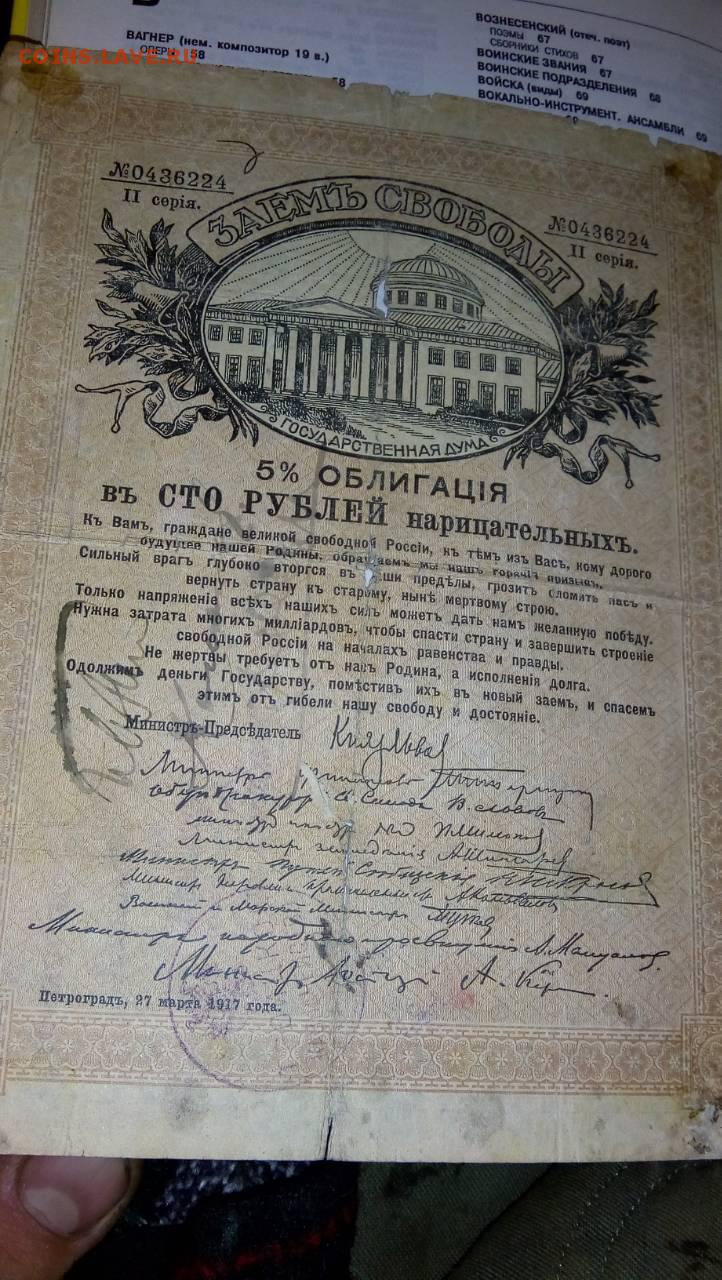 COINS.LAVE.RU
ВАГНЕР (нем. композитор 19 в.)
ОПЕРЫ 58
58
ВОЗНЕСЕНСКИЙ (отеч. поэт)
ПОЭМЫ 67
СБОРНИКИ СТИХОВ 67
ВОИНСКИЕ ЗВАНИЯ 67
ВОИНСКИЕ ПОДРАЗДЕЛЕНИЯ 68
ВОЙСКА (виды) 69
ВОКАЛЬНО-ИНСТРУМЕНТ. АНСАМБЛИ 69
№0436224
II серія.
№0436224
II серія.
ЗАЕМЪ СВОБОДЫ
ГОСУДАРСТВЕННАЯ ДУМА
5% ОБЛИГАЦІЯ
въ СТО РУБЛЕЙ нарицательныхъ.
Къ Вамъ, граждане великой свободной Россіи, къ тѣмъ изъ Васъ, кому дорого
будущее нашей Родины, обращаемъ мы нашъ горячій призывъ.
Сильный врагъ глубоко вторгся въ наши предѣлы, грозитъ сломить насъ и
вернуть страну къ старому, нынѣ мертвому строю.
Только напряженіе всѣхъ нашихъ силъ можетъ дать намъ желанную побѣду.
Нужна затрата многихъ милліардовъ, чтобы спасти страну и завершить строеніе
свободной Россіи на началахъ равенства и правды.
Не жертвы требуетъ отъ насъ Родина, а исполненія долга.
Одолжимъ деньги Государству, помѣстивъ ихъ въ новый заемъ, и спасемъ
этимъ отъ гибели нашу свободу и достояніе.
Министръ-Предсѣдатель Князь Львов
Министръ финансовъ
Оберъ Прокуроръ Св. Синода В. Львовъ
Министръ П. Милюков
Министръ земледѣлія А. Шингарев
Министръ Путей Сообщенія Н. Некрасов
Министръ Торговли и Промышленности А. Коновалов
Военный и Морской Министръ Гучков
Министръ народнаго просвѣщенія А. Мануйлов.
Министръ Юстиціи А. Кер
Петроградъ, 27 марта 1917 года.